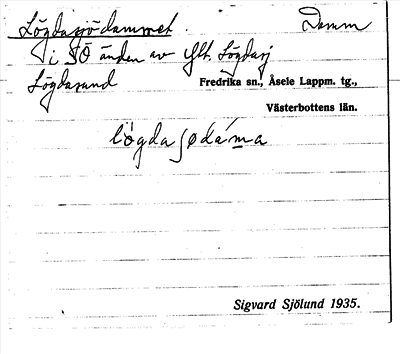 Lögdasjödammet. Damm
i SÖ änden av Ytt. Lögdasj
Lögdasund Fredrika sn., Åsele Lappm. tg.,
Västerbottens län.
lögdasjødáma
Sigvard Sjölund 1935.